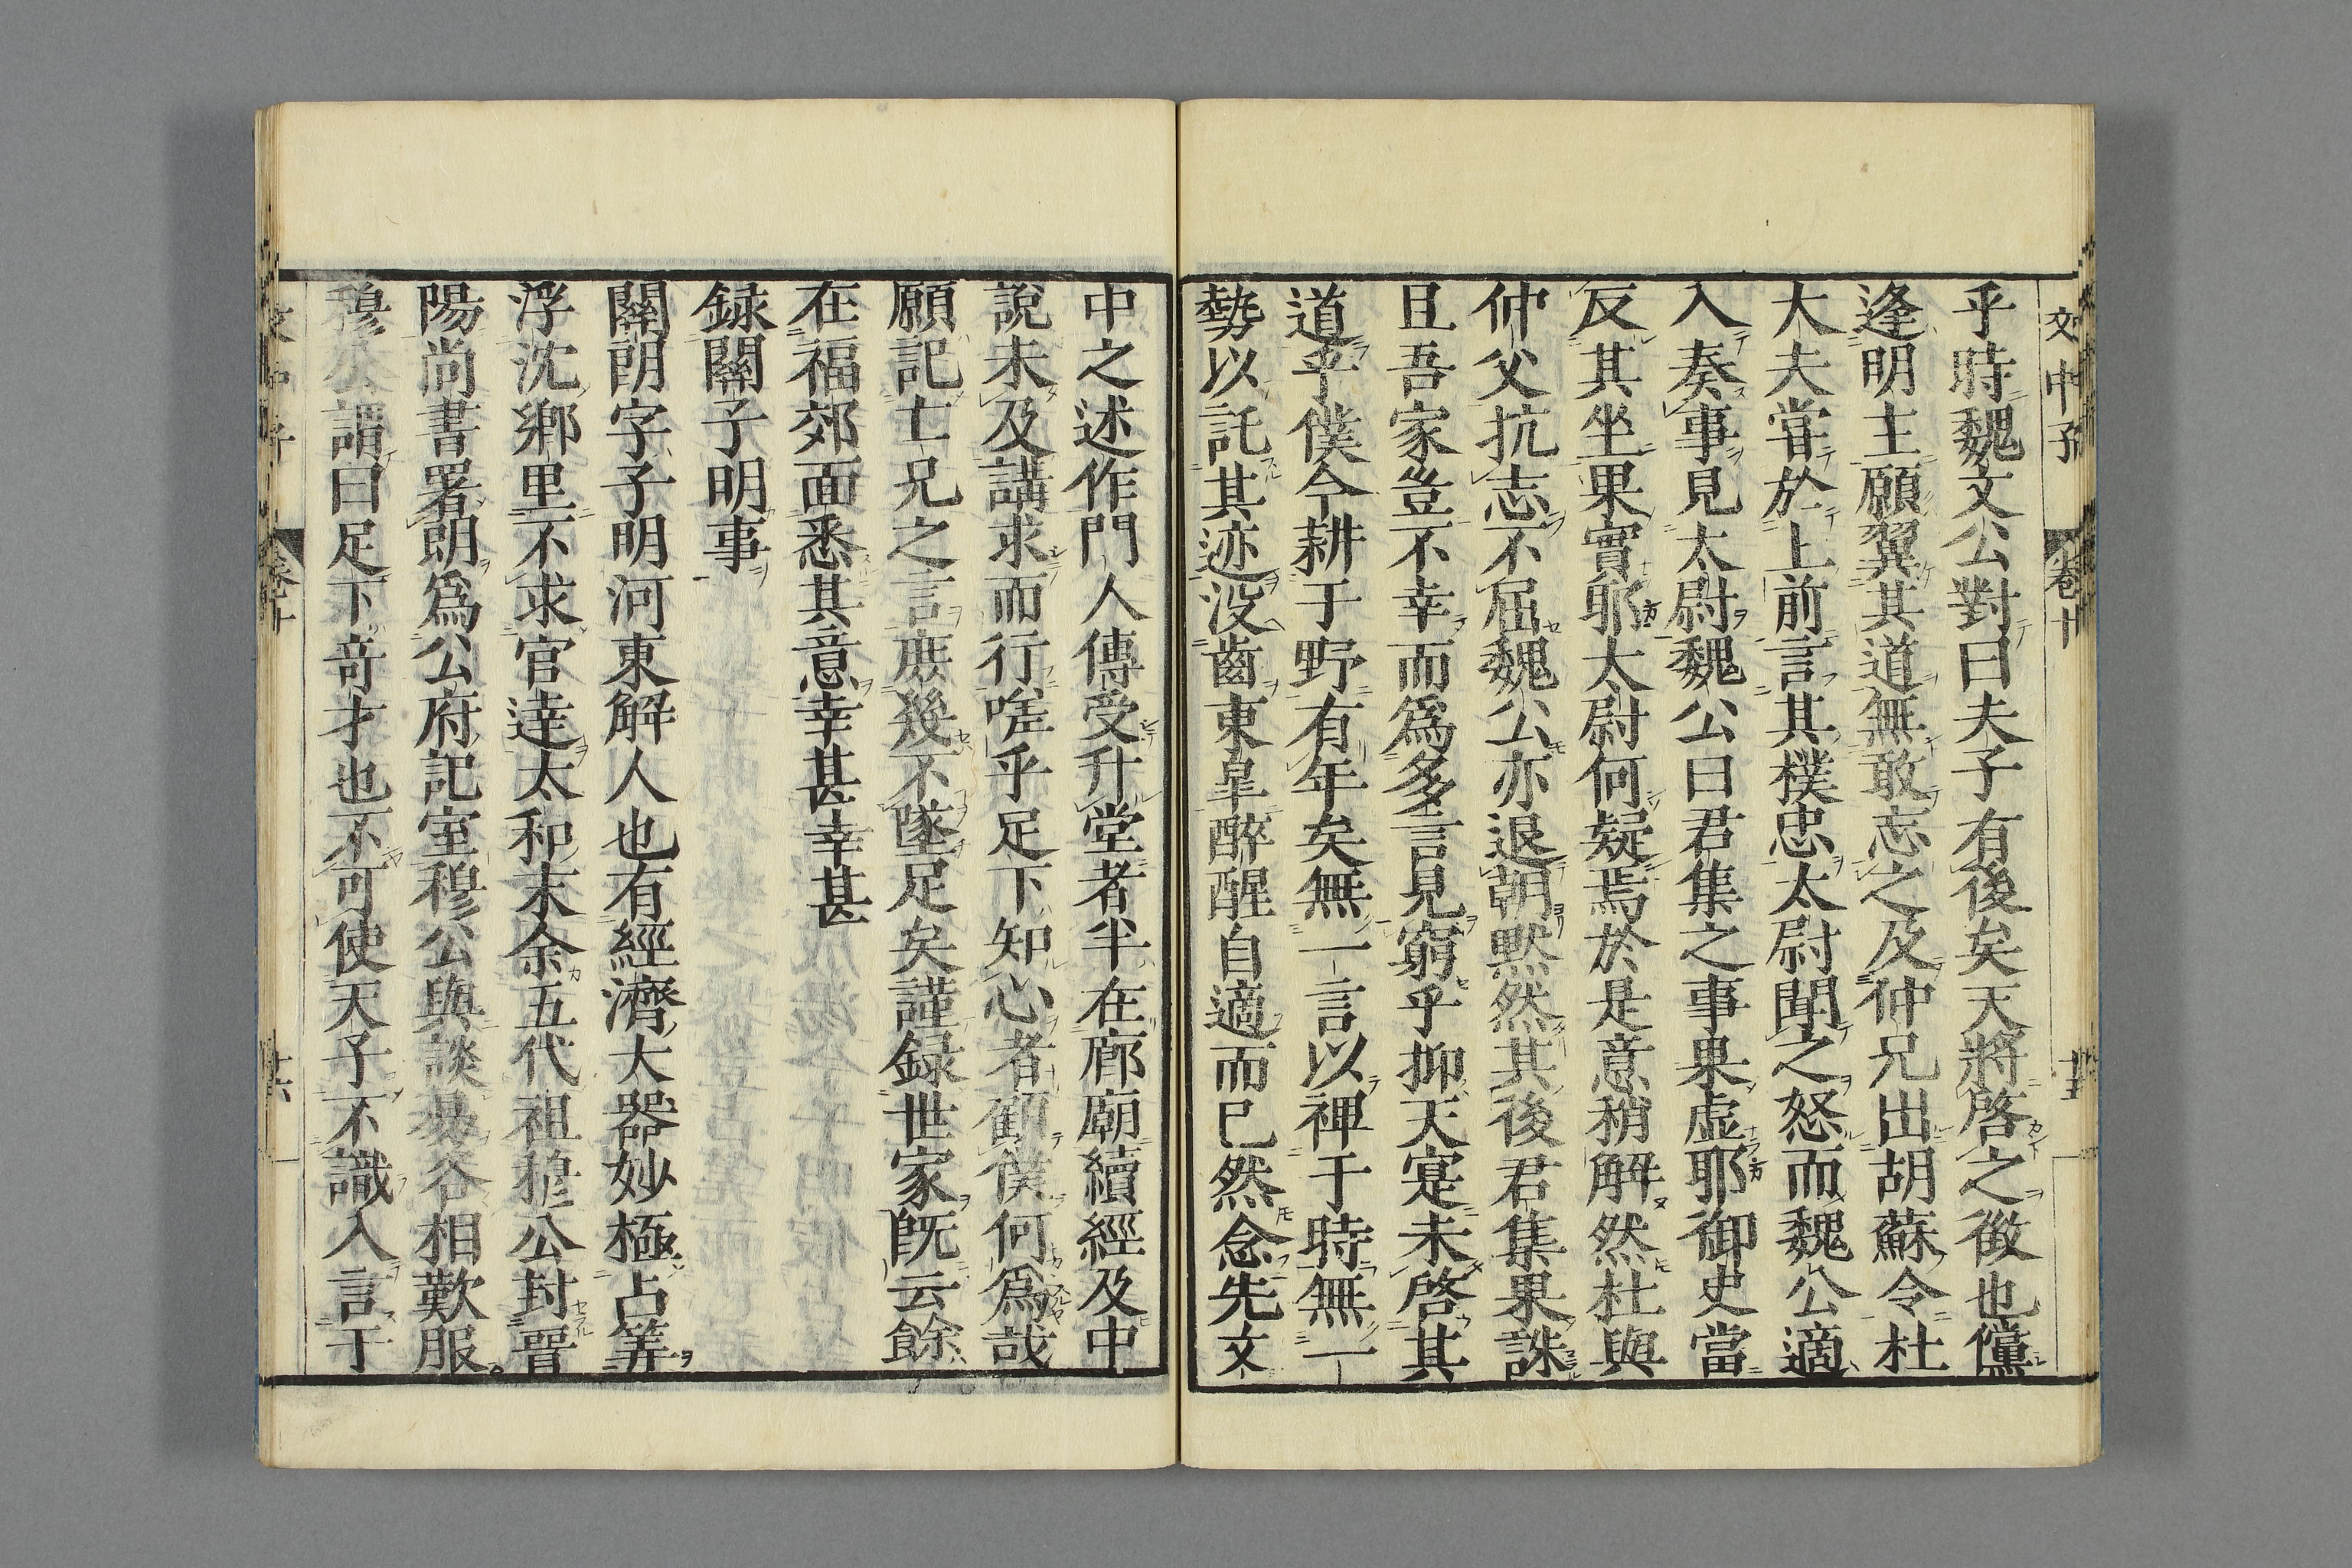 文中子 卷十 十五
乎時魏文公對曰夫子有後矣天將啓之徴也儻
逢明主願翼其道無敢忘之及仲兄出胡蘇令杜
大夫嘗於上前言其樸忠太尉聞之怒而魏公適
入奏事見太尉魏公曰君集之事果虚耶御史當
反其坐果實耶太尉何疑焉於是意稍解然杜與
仲父抗志不屈魏公亦退朝黙然其後君集果誅
且吾家豈不幸而爲多言見窮乎抑天寔未啓其
道乎僕今耕于野有年矣無一言以裨于時無一
勢以託其迹没齒東皐醉醒自適而已然念先文
中之述作門人傳受升堂者半在廊廟續經及中
說未及講求而行嗟乎足下知心者顧僕何爲哉
願記亡兄之言庶幾不墜足矣謹録世家既云餘
在福郊面悉其意幸甚幸甚
録關子明事
關朗字子明河東解人也有經濟大器妙極占筭
浮沈鄉里不求官達太和末余五代祖穆公封晉
陽尚書署朗爲公府記室穆公與談易各相歎服
穆公謂曰足下奇才也不可使天子不識入言于
文中子 卷十 十六